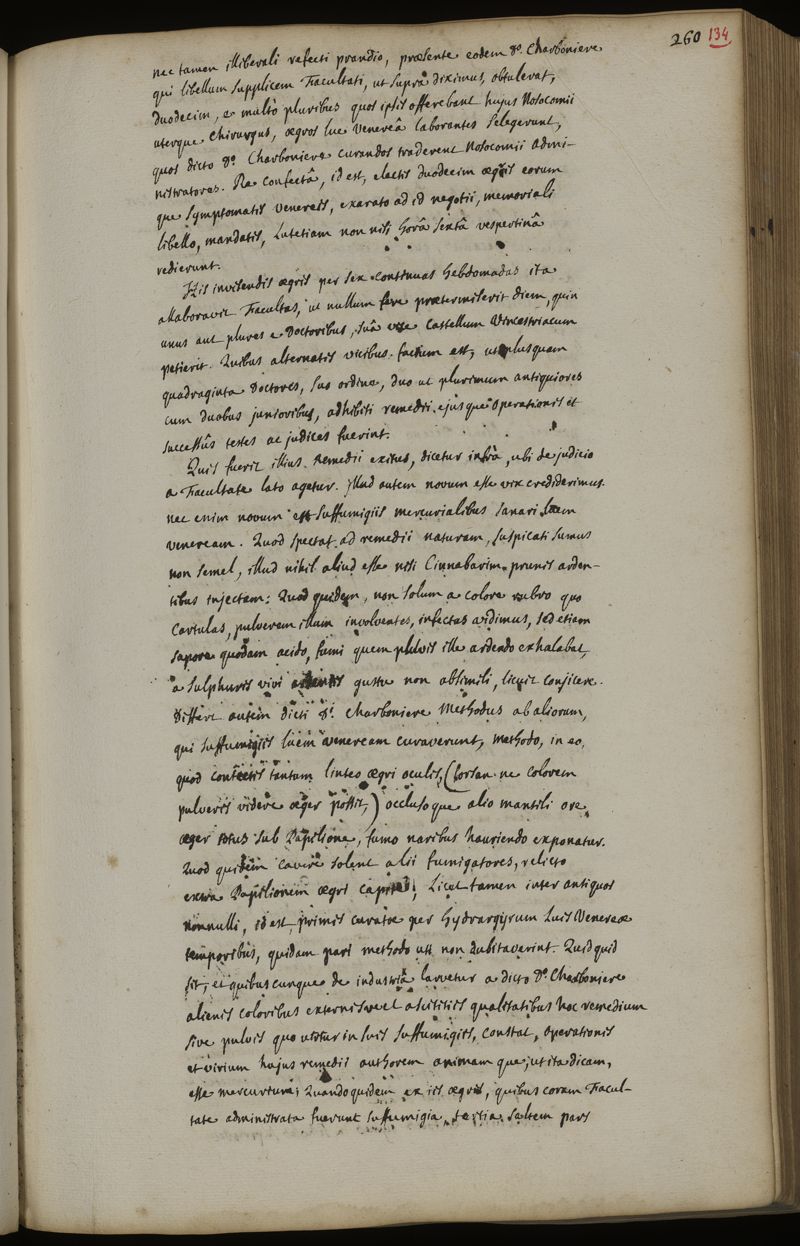 260 134
nec tamen illiberali refecti prandio, præsente eodem D°. Charboniere
qui libellum supplicem Facultati, ut suprà diximus, obtulerat,
duodecim, e multò pluribus quos ipsis offerebant hujus Nosocomii
uterque chirurgus, ægros lue Venereâ laborantes selegerunt,
quos dicto D°. Charboniere curandos traderent Nosocomii admi-
nistratores. Re confectâ, id est, electis duodecim ægris eorum
que symptomatis venereis, exarato ad id negotii, memoriali
libello, mandatis, Lutetiam non nisi horâ sextâ vespertinâ
redierunt.
His invisendis ægris per sex continuas hebdomadas ita
allaboravit Facultas, ut nullum fere prætermiserit diem, quin
unus aut plures e Doctoribus, suâ vice Castellum Vincestriacum
petierit. Quibus alternatis vicibus factum est, ut plusquam
quadraginta Doctores, suo ordine, duo ut plurimum antiquiores
cum duobus junioribus, adhibiti remedii ejusque operationis et
successûs testes ac judices fuerint.
Quis fuerit illius Remedii exitus, dicetur infrà, ubi de judicio
a Facultate lato agetur. Illud autem novum esse vix crediderimus.
nec enim novum est suffumigiis mercurialibus sanari luem
veneream. Quod spectat ad remedii naturam, suspicati sumus
non semel, illud nihil aliud esse nisi Cinnabarim prunis arden-
tibus injectam: Quod quidem, non solum a colore rubro quo
Cartulas, pulverem illum involventes, infectas vidimus, sed etiam
sapore quodam acido, fumi quem pulvis ille ardendo exhalabat,
a sulphuris vivi gustu non absimili, licuit conjicere.
Differt autem dicti D1. Charboniere Methodus ab aliorum,
qui suffumigiis luem veneream curaverunt, methodo, in eo,
quod contectis tantum linteo ægri oculis, (forsan ne colorem
pulveris videre æger possit,) occlusoque alio mantili ore
æger totus sub Papilione, fumo naribus hauriendo exponatur.
Quod quidem cavere solent alii fumigatores, relicto
extra Papilionem ægri capite; Licet tamen inter antiquos
nonnulli, id est, primis curatæ per hydrargyrum Luis Venereæ
temporibus, quidam pari methodo uti non dubitaverint. Quidquid
sit, et quibuscunque de industriâ larvetur a dicto D° Charboniere
alienis coloribus externisve et ascititiis qualitatibus hoc remedium
sive pulvis quo utitur in suis suffumigiis, constat, operationis
et virium hujus remedii authorem animam que, ut ita dicam,
esse mercurium; Quandoquidem ex iis ægris, quibus coram Facul-
tate administrata fuerunt suffumigia, tertia saltem pars